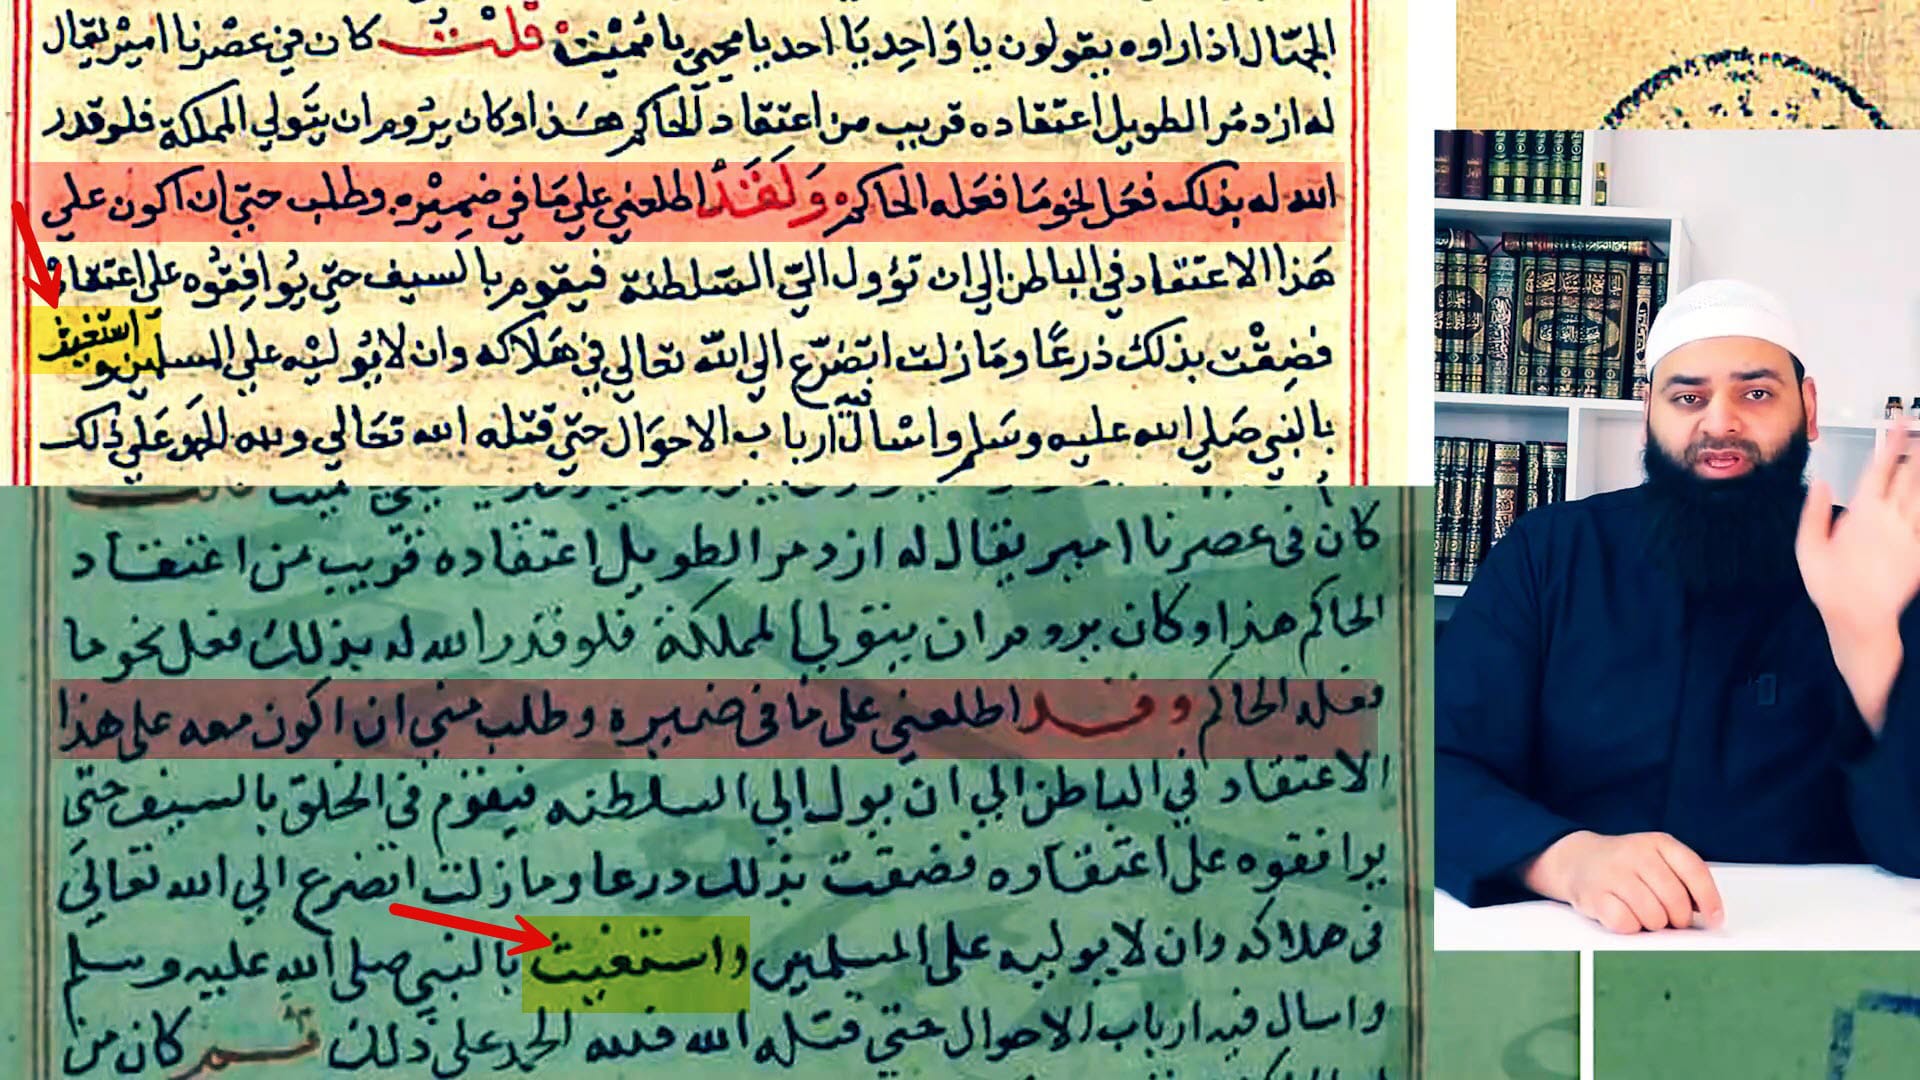 الجهال اذا راوه يقولون يا واحد يا احد يا محيي يا مميت قلت كان في عصرنا امير يقال
له ازدمر الطويل اعتقاده قريب من اعتقاد الحاكم هذا وكان يروم ان يتولي المملكة فلو قدر
الله له بذلك فعل نحو ما فعله الحاكم ولقد اطلعني علي ما في ضميره وطلب حتي ان اكون علي
هذا الاعتقاد في الباطن الي ان تؤول الي السلطنة فيقوم بالسيف حتي يوافقوه علي اعتقاده
فضقت بذلك ذرعا وما زلت اتضرع الي الله تعالي في هلاكه وان لا يوليه علي المسلمين و استغيث
بالنبي صلي الله عليه وسلم واسال فيه ارباب الاحوال حتي قتله الله تعالي ولله الحمد علي ذلك
كان فى عصرنا امير يقال له ازدمر الطويل اعتقاده قريب من اعتقاد
الحاكم هذا وكان يروم ان يتولي المملكة فلو قدر الله له بذلك فعل نحو ما
فعله الحاكم وقد اطلعني على ما فى ضميره وطلب مني ان اكون معه على هذا
الاعتقاد في الباطن الي ان يول الي السلطنه فيقوم فى الخلق بالسيف حتي
يوافقوه على اعتقاده فضقت بذلك درعا وما زلت اتضرع الي الله تعالي
فى هلاكه وان لا يوليه على المسلمين واستغيث بالنبي صلى الله عليه وسلم
واسال فيه ارباب الاحوال حتي قتله الله فلله الحمد على ذلك ثم كان من